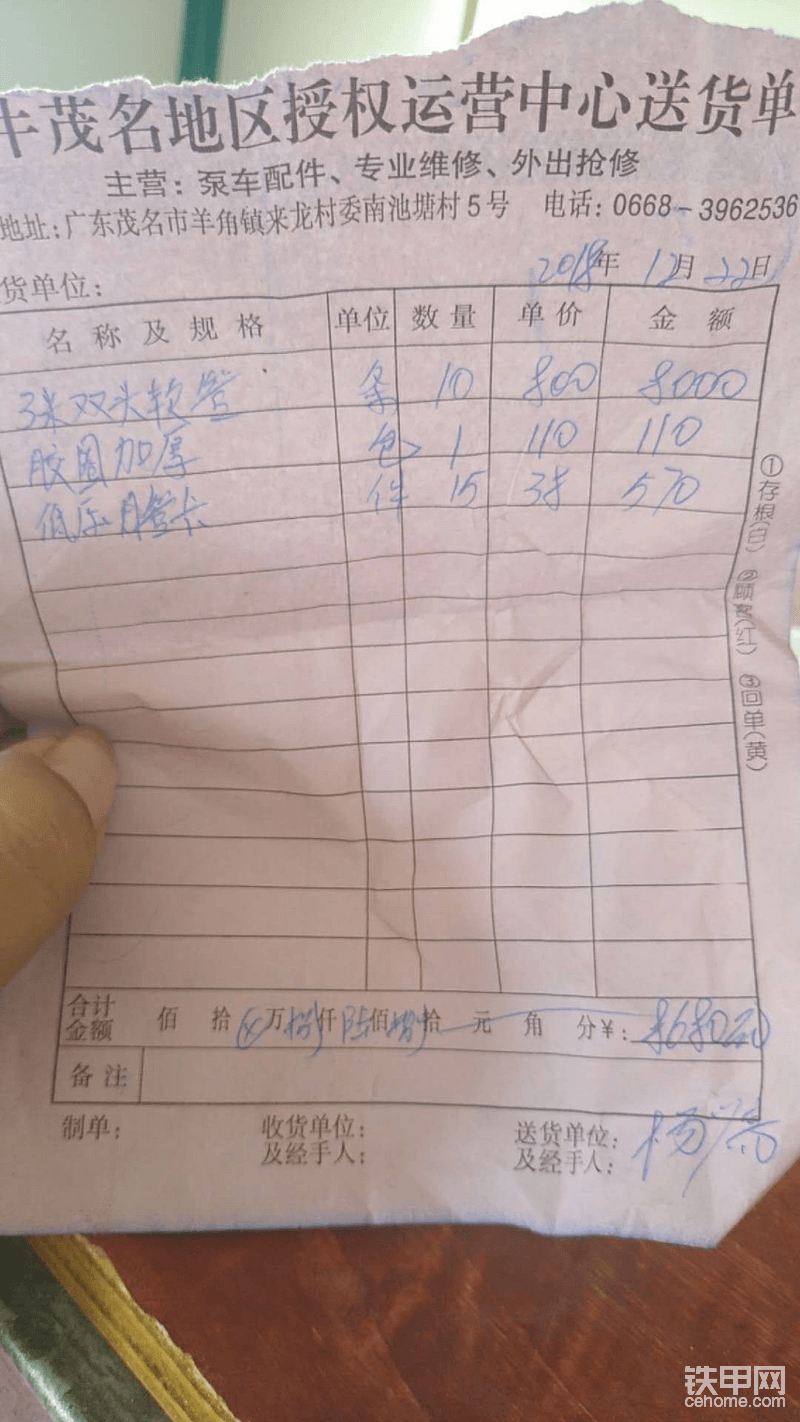 牛茂名地区授权运营中心送货单
主营：泵车配件、专业维修、外出抢修
地址：广东茂名市羊角镇来龙村委南池塘村5号 电话：0668-3962536
货单位： 2018年12月22日
名称及规格 单位 数量 单价 金额
3米双头软管 条 10 800 8000
胶圈加厚 包 1 110 110
低压管卡 件 15 38 570
①存根(白) ②顾客(红) ③回单(黄)
合计金额 佰 拾 万捌仟陆佰捌拾 元 角 分￥：8680元
备注
制单： 收货单位： 送货单位：
及经手人： 及经手人：杨
铁甲网
cehome.com